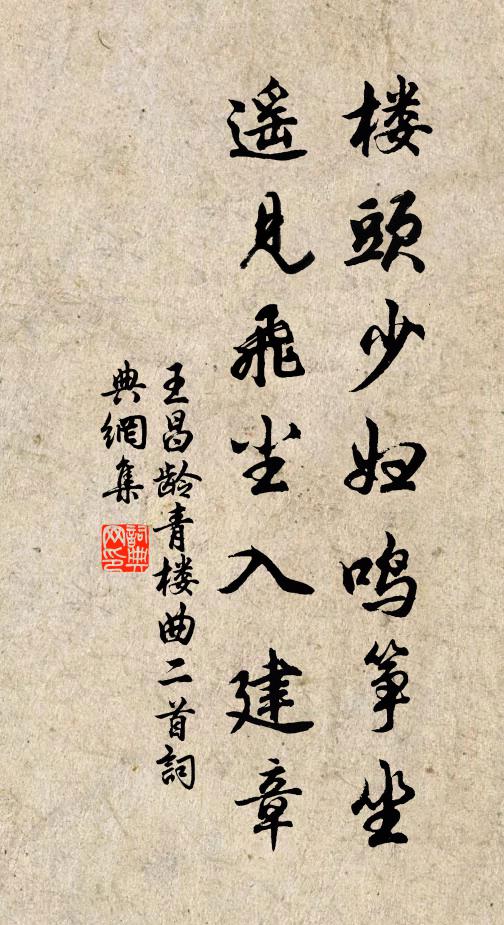 楼頭少妇鸣筝坐
遥見飛尘入建章
王昌龄青楼曲二首詞
典網集
詞典网印